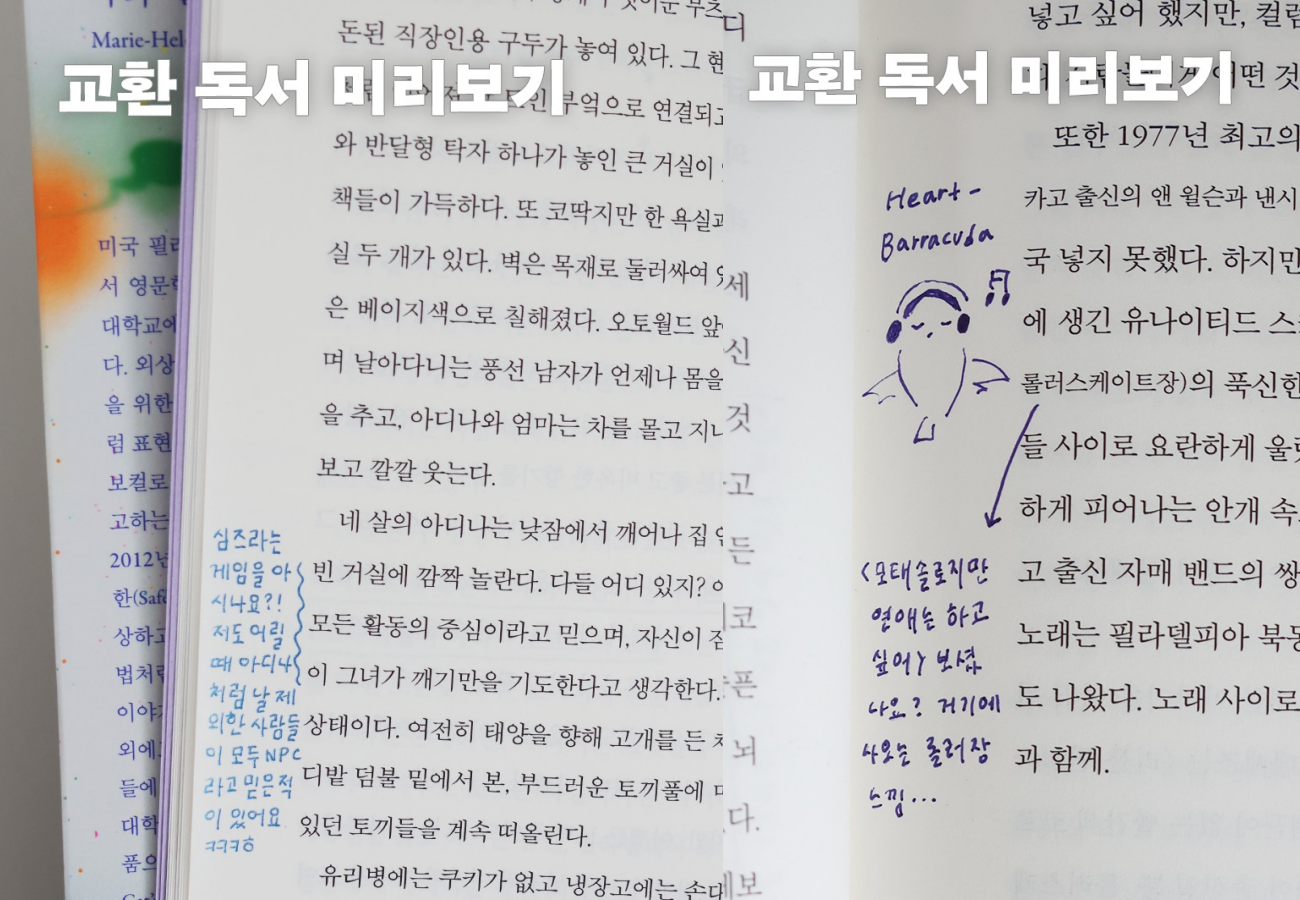 교환 독서 미리보기
Marie-Hel
미국 필라
서 영문학
대학교에
다. 외상
을 위한
럼 표현
보컬로
고하는
2012년
한(Safe
상하고
법처럼
이야기
외에
들에
대학
품으
돈된 직장인용 구두가 놓여 있다. 그 현
부엌으로 연결되고
와 반달형 탁자 하나가 놓인 큰 거실이
책들이 가득하다. 또 코딱지만 한 욕실과
실 두 개가 있다. 벽은 목재로 둘러싸여
은 베이지색으로 칠해졌다. 오토월드 앞
며 날아다니는 풍선 남자가 언제나 몸을
을 추고, 아디나와 엄마는 차를 몰고 지나
보고 깔깔 웃는다.
네 살의 아디나는 낮잠에서 깨어나 집 안
빈 거실에 깜짝 놀란다. 다들 어디 있지?
모든 활동의 중심이라고 믿으며, 자신이 잠
이 그녀가 깨기만을 기도한다고 생각한다.
상태이다. 여전히 태양을 향해 고개를 든 채
디밭 덤불 밑에서 본, 부드러운 토끼풀에
있던 토끼들을 계속 떠올린다.
유리병에는 쿠키가 없고 냉장고에는 손대
심즈라는
게임을 아
시나요?!
저도 어릴
때 아디나
처럼 날 제
외한 사람들
이 모두 NPC
라고 믿은 적
이 있어요
ㅋㅋㅋㅎ
교환 독서 미리보기
디
세
신
것
고
든
코
픈
뇌
다.
보
넣고 싶어 했지만, 컬럼
어떤 것
또한 1977년 최고의
카고 출신의 앤 윌슨과 낸시
국 넣지 못했다. 하지만
에 생긴 유나이티드 스
롤러스케이트장)의 푹신한
들 사이로 요란하게 울렸
하게 피어나는 안개 속
고 출신 자매 밴드의 쌍
노래는 필라델피아 북동
도 나왔다. 노래 사이로
과 함께.
Heart -
Barracuda
<모태솔로지만
연애는 하고
싶어> 보셨
나요? 거기에
나오는 롤러장
느낌...